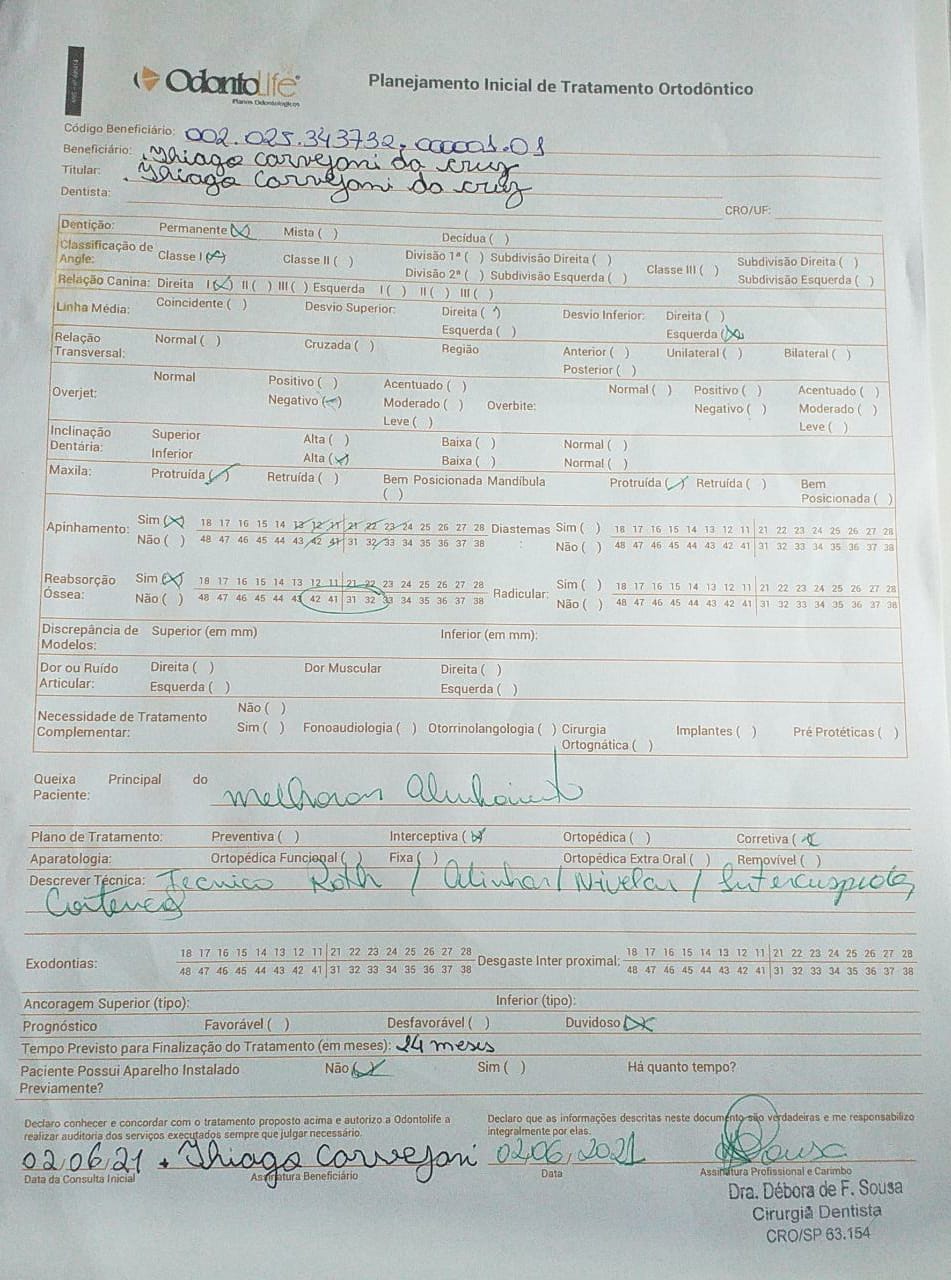 OdontoLife
Planos Odontológicos
Planejamento Inicial de Tratamento Ortodôntico
Código Beneficiário: 002.025.343732.00001.01
Beneficiário: Thiago Carvejani da cruz
Titular: Thiago Carvejani da cruz
Dentista: CRO/UF:
Dentição: Permanente (X) Mista ( ) Decídua ( )
Classificação de Angle: Classe I (X) Classe II ( ) Divisão 1ª ( ) Subdivisão Direita ( ) Classe III ( ) Subdivisão Direita ( )
Divisão 2ª ( ) Subdivisão Esquerda ( ) Subdivisão Esquerda ( )
Relação Canina: Direita I (X) II ( ) III ( ) Esquerda I ( ) II ( ) III ( )
Linha Média: Coincidente ( ) Desvio Superior: Direita ( ) Desvio Inferior: Direita ( )
Esquerda ( ) Esquerda (X)
Relação Transversal: Normal ( ) Cruzada ( ) Região Anterior ( ) Unilateral ( ) Bilateral ( )
Posterior ( )
Overjet: Normal Positivo ( ) Acentuado ( ) Overbite: Normal ( ) Positivo ( ) Acentuado ( )
Negativo ( ) Moderado ( ) Negativo ( ) Moderado ( )
Leve ( ) Leve ( )
Inclinação Dentária: Superior Alta ( ) Baixa ( ) Normal ( )
Inferior Alta (X) Baixa ( ) Normal ( )
Maxila: Protruída ( ) Retruída ( ) Bem Posicionada ( ) Mandíbula Protruída ( ) Retruída ( ) Bem Posicionada ( )
Apinhamento: Sim (X) 18 17 16 15 14 13 12 11 21 22 23 24 25 26 27 28 Diastemas: Sim ( ) 18 17 16 15 14 13 12 11 21 22 23 24 25 26 27 28
Não ( ) 48 47 46 45 44 43 42 41 31 32 33 34 35 36 37 38 Não ( ) 48 47 46 45 44 43 42 41 31 32 33 34 35 36 37 38
Reabsorção Óssea: Sim (X) 18 17 16 15 14 13 12 11 21 22 23 24 25 26 27 28 Radicular: Sim ( ) 18 17 16 15 14 13 12 11 21 22 23 24 25 26 27 28
Não ( ) 48 47 46 45 44 43 42 41 31 32 33 34 35 36 37 38 Não ( ) 48 47 46 45 44 43 42 41 31 32 33 34 35 36 37 38
Discrepância de Modelos: Superior (em mm) Inferior (em mm):
Dor ou Ruído Articular: Direita ( ) Dor Muscular Direita ( )
Esquerda ( ) Esquerda ( )
Necessidade de Tratamento Complementar: Não ( )
Sim ( ) Fonoaudiologia ( ) Otorrinolangologia ( ) Cirurgia Ortognática ( ) Implantes ( ) Pré Protéticas ( )
Queixa Principal do Paciente: Melhorar Alinhamento
Plano de Tratamento: Preventiva ( ) Interceptiva (X) Ortopédica ( ) Corretiva (X
Aparatologia: Ortopédica Funcional ( ) Fixa ( ) Ortopédica Extra Oral ( ) Removível ( )
Descrever Técnica: Tecnica Roth / Alinhar / Nivelar /
Exodontias: 18 17 16 15 14 13 12 11 21 22 23 24 25 26 27 28 Desgaste Inter proximal: 18 17 16 15 14 13 12 11 21 22 23 24 25 26 27 28
48 47 46 45 44 43 42 41 31 32 33 34 35 36 37 38 48 47 46 45 44 43 42 41 31 32 33 34 35 36 37 38
Ancoragem Superior (tipo): Inferior (tipo):
Prognóstico Favorável ( ) Desfavorável ( ) Duvidoso (X)
Tempo Previsto para Finalização do Tratamento (em meses): 24 meses
Paciente Possui Aparelho Instalado Previamente? Não (X) Sim ( ) Há quanto tempo?
Declaro conhecer e concordar com o tratamento proposto acima e autorizo a Odontolife a
realizar auditoria dos serviços executados sempre que julgar necessário.
Declaro que as informações descritas neste documento são verdadeiras e me responsabilizo
integralmente por elas.
02,06,21 Thiago Carvejani 02,06,2021 Sousa
Data da Consulta Inicial Assinatura Beneficiário Data Assinatura Profissional e Carimbo
Dra. Débora de F. Sousa
Cirurgiã Dentista
CRO/SP 63.154